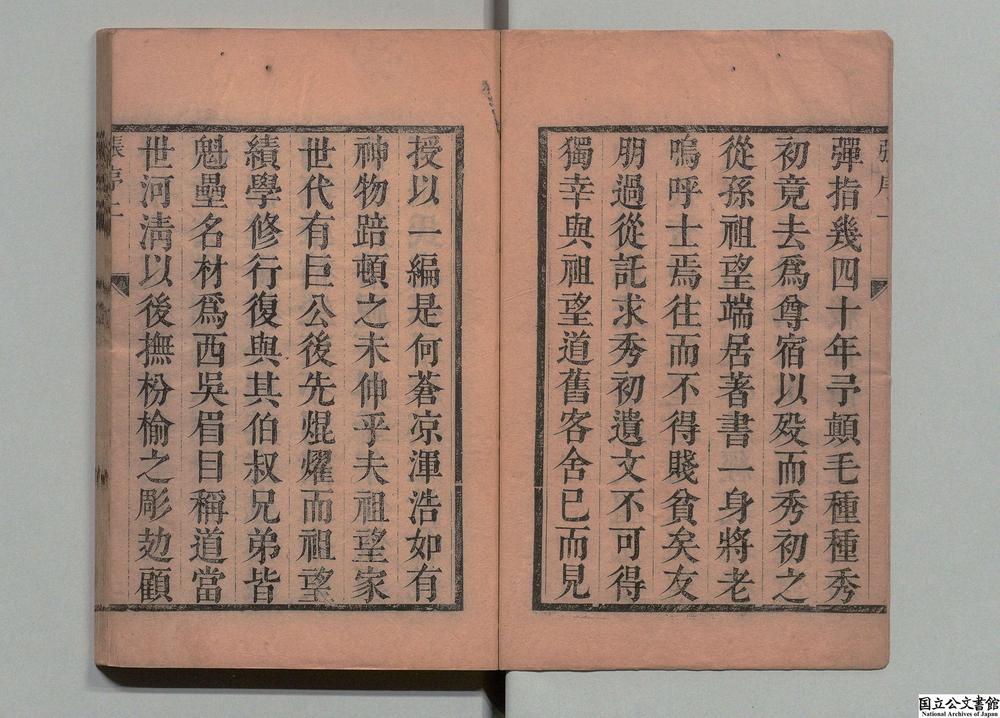 彈指幾四十年予顛毛種種秀
初竟去爲尊宿以歿而秀初之
從孫祖望端居著書一身將老
嗚呼士焉往而不得賤貧矣友
朋過從託求秀初遺文不可得
獨幸與祖望道舊客舍已而見
授以一編是何蒼凉渾浩如有
神物踣頓之未伸乎夫祖望家
世代有巨公後先焜燿而祖望
績學修行復與其伯叔兄弟皆
魁壘名材爲西吳眉目稱道當
世河淸以後撫枌榆之彫勊顧
張序二
国立公文書館
National Archives of Japan